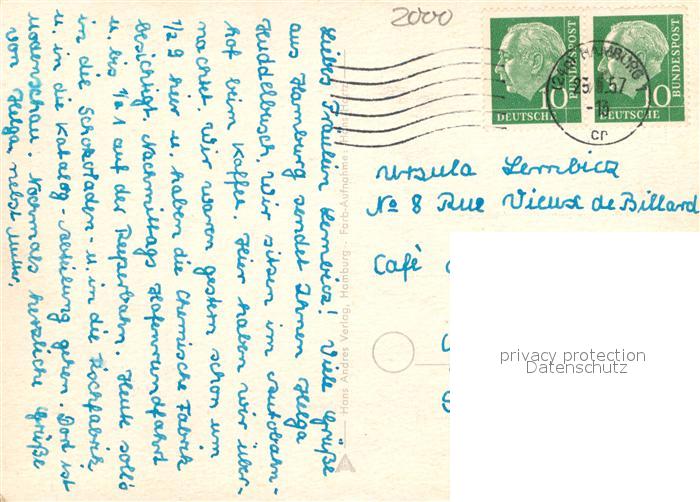 2000
DEUTSCHE BUNDESPOST
10
DEUTSCHE BUNDESPOST
10
HAMBURG
cr
Ursula Lembicz
No 8 Rue Vieux de Billard
Café
privacy protection
Datenschutz
Hans Andres Verlag, Hamburg - Farb-Aufnahme: Hans Hartz
Liebes Fräulein Lembicz! Viele Grüße
aus Hamburg sendet Ihnen Helga
Huddelbusch. Wir sitzen im Autobahn-
hof beim Kaffee. Hier haben wir über-
nachtet. Wir waren gestern schon um
1/2 9 hier u. haben die Chemische Fabrik
besichtigt. Nachmittags Hafenrundfahrt
u. bis 1/2 1 auf der Reeperbahn. Heute soll's
in die Schokoladen- u. in die Fischfabrik
u. in die Katalog-Abteilung gehen. Dort ist
Modenschau. Nochmals herzliche Grüße
von Helga, nebst Mutter,